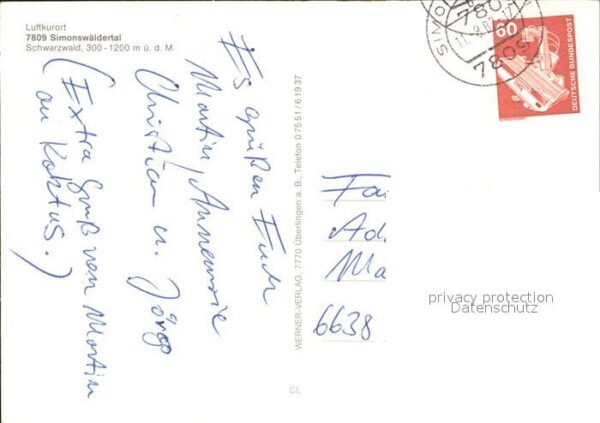 Luftkurort
7809 Simonswäldertal
Schwarzwald, 300-1200 m ü. d. M.
Es grüßen Euch
Martin, Annemarie
Christian u. Jörg
(Extra Gruß von Martin
an Kaktus.)
WERNER-VERLAG, 7770 Überlingen a. B., Telefon 07551/61937
CL
60
DEUTSCHE BUNDESPOST
7809
7809
Fa
Ad
Ma
6638
privacy protection
Datenschutz